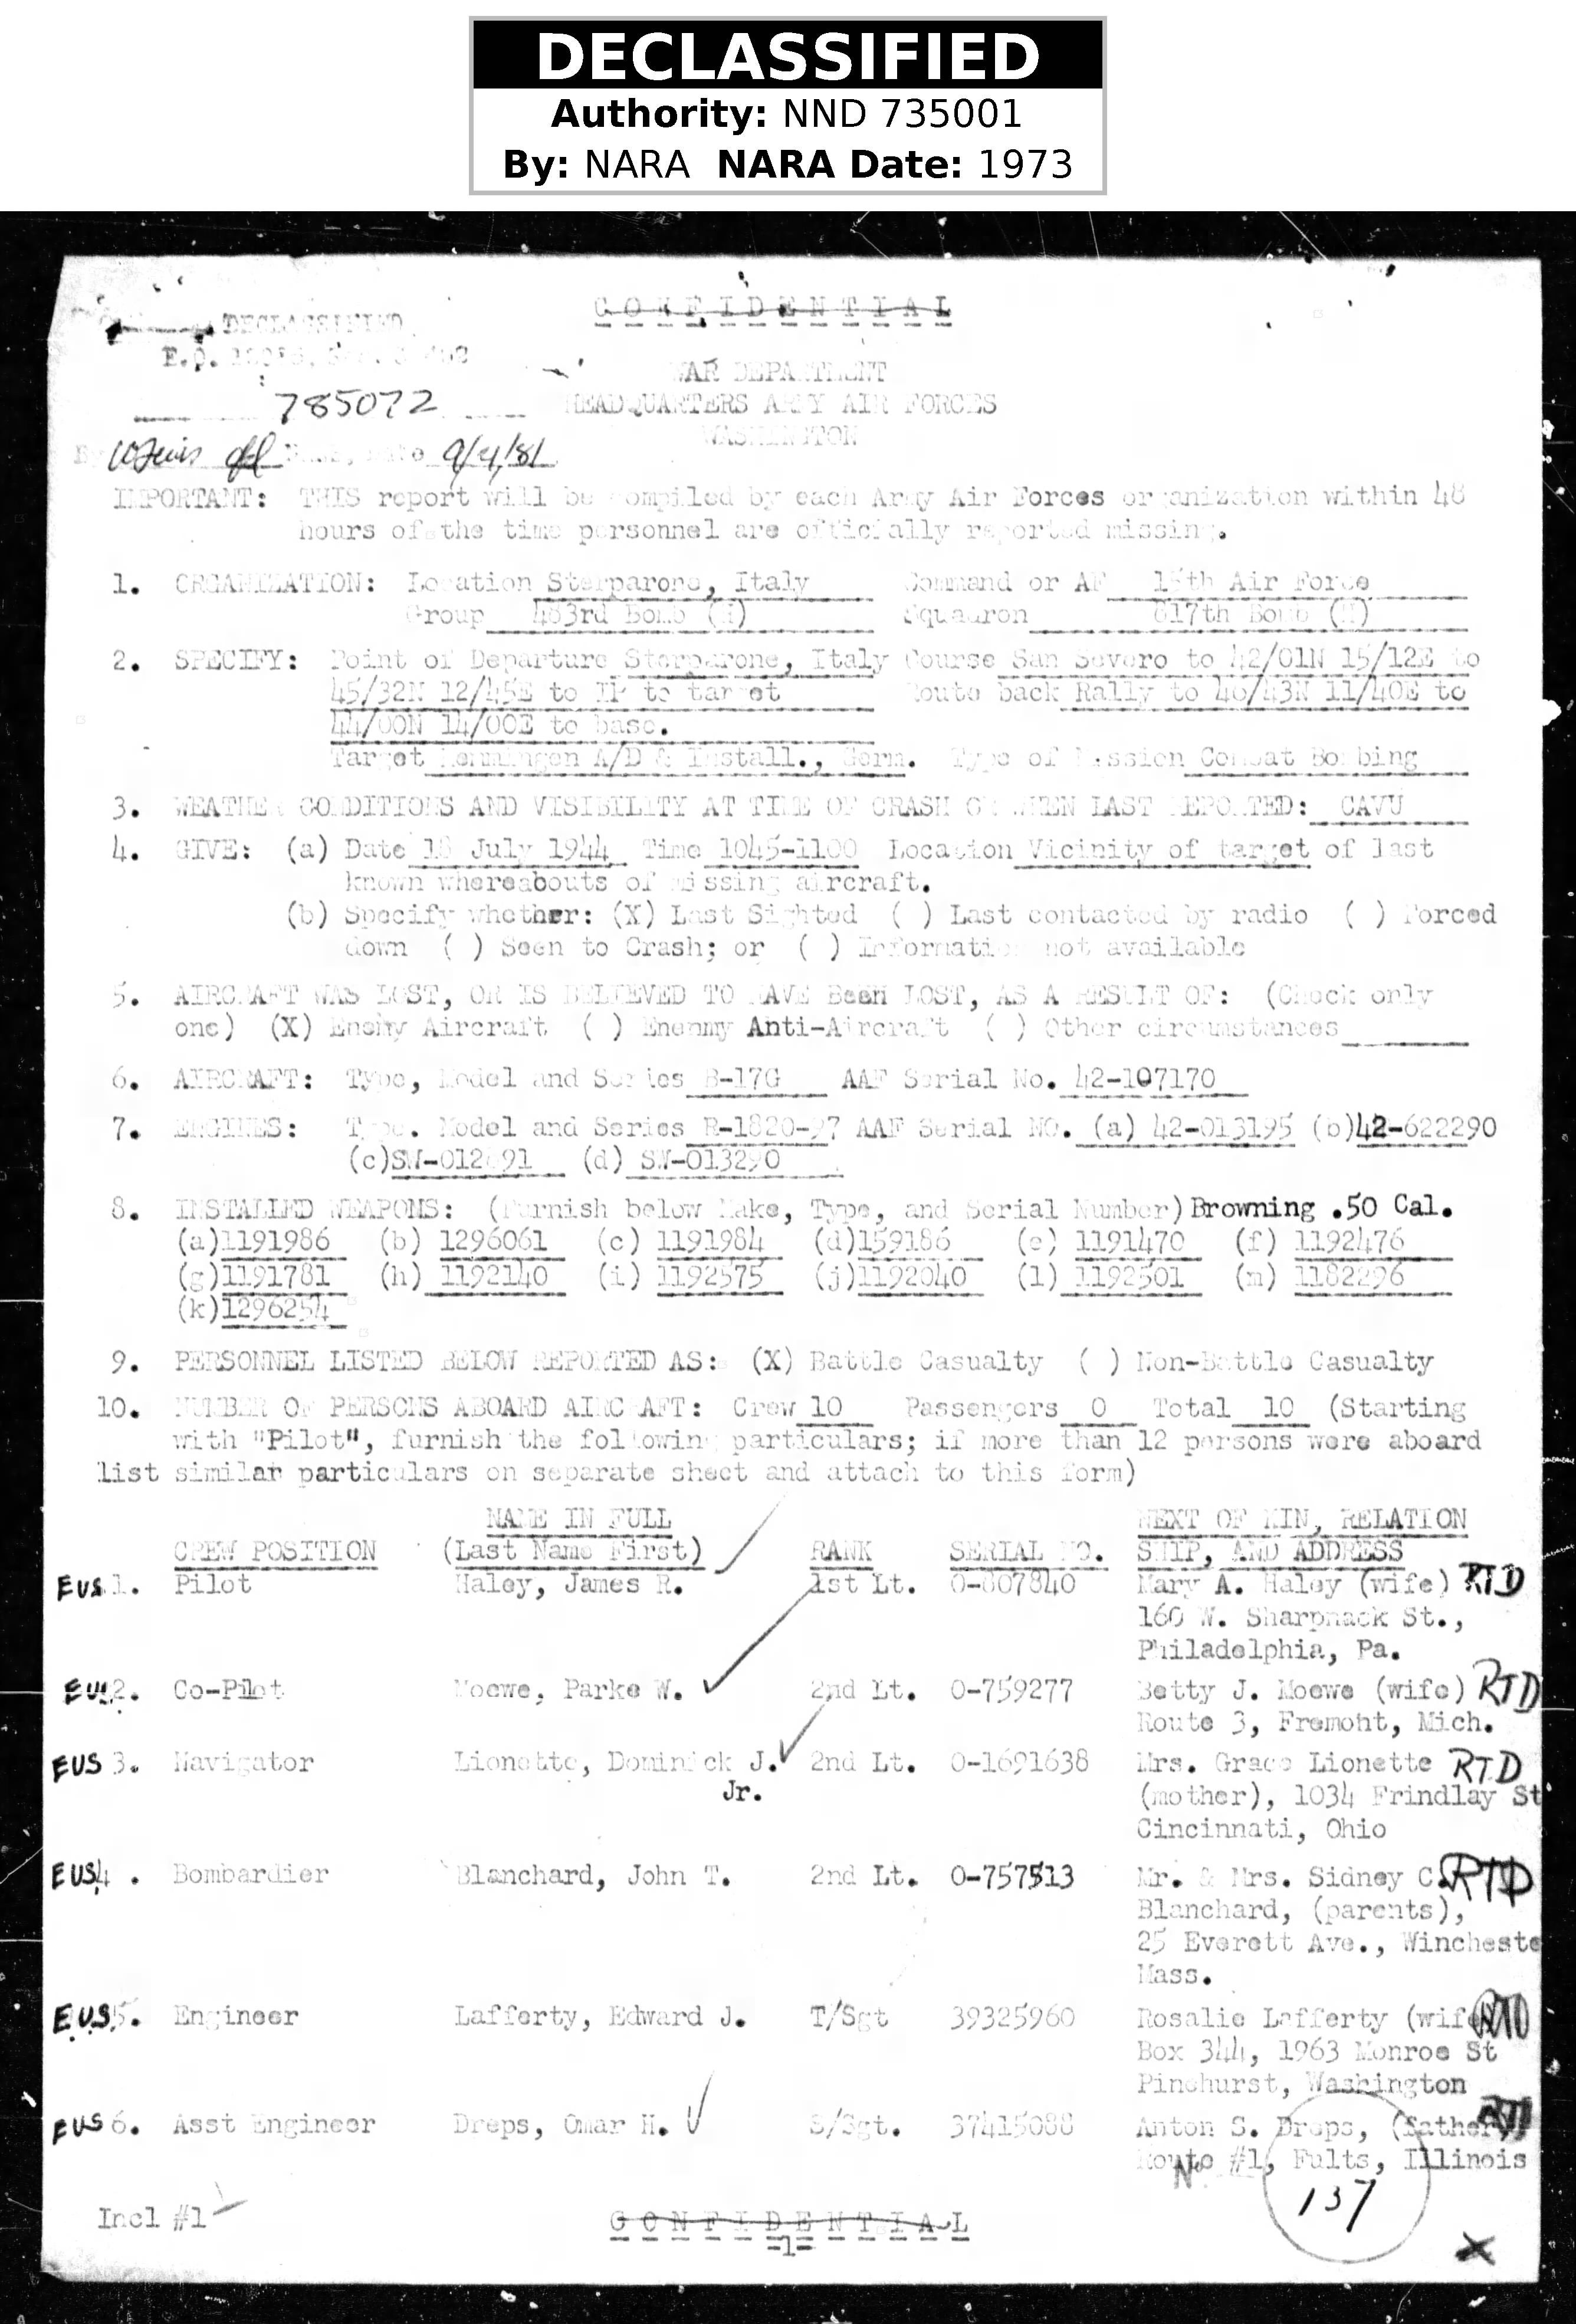 DECLASSIFIED
Authority: NND 735001
By: NARA NARA Date: 1973
CONFIDENTIAL
DECLASSIFIED
E.O.
WAR DEPARTMENT
785072
HEADQUARTERS ARMY AIR FORCES
WASHINGTON
Date 9/4/81
IMPORTANT: THIS report will be compiled by each Army Air Forces organization within 48
hours of the time personnel are officially reported missing.
1. ORGANIZATION: Location Sterparone, Italy Command or AF 15th Air Force
Group 463rd Bomb (H) Squadron 817th Bomb (H)
2. SPECIFY: Point of Departure Sterparone, Italy Course San Severo to 42/01N 15/12E to
45/32N 12/45E to IP to target Route back Rally to 46/43N 11/40E to
44/00N 14/00E to base.
Target Memmingen A/D & Install., Germ. Type of Mission Combat Bombing
3. WEATHER CONDITIONS AND VISIBILITY AT TIME OF CRASH OR WHEN LAST REPORTED: CAVU
4. GIVE: (a) Date 18 July 1944 Time 1045-1100 Location Vicinity of target of last
known whereabouts of missing aircraft.
(b) Specify whether: (X) Last Sighted ( ) Last contacted by radio ( ) Forced
down ( ) Seen to Crash; or ( ) Information not available
5. AIRCRAFT WAS LOST, OR IS BELIEVED TO HAVE Been LOST, AS A RESULT OF: (Check only
one) (X) Enemy Aircraft ( ) Enenmy Anti-Aircraft ( ) Other circumstances
6. AIRCRAFT: Type, Model and Series B-17G AAF Serial No. 42-107170
7. ENGINES: Type. Model and Series R-1820-97 AAF Serial NO. (a) 42-013195 (b)42-622290
(c)SW-012891 (d) SW-013290
8. INSTALLED WEAPONS: (Furnish below Make, Type, and Serial Number) Browning .50 Cal.
(a)1191986 (b) 1296061 (c) 1191984 (d)159186 (e) 1191470 (f) 1192476
(g)1191781 (h) 1192140 (i) 1192575 (j)1192040 (l) 1192501 (m) 1182296
(k)1296254
9. PERSONNEL LISTED BELOW REPORTED AS: (X) Battle Casualty ( ) Non-Battle Casualty
10. NUMBER OF PERSONS ABOARD AIRCRAFT: Crew 10 Passengers 0 Total 10 (Starting
with "Pilot", furnish the following particulars; if more than 12 persons were aboard
list similar particulars on separate sheet and attach to this form)
NAME IN FULL NEXT OF KIN, RELATION
CREW POSITION (Last Name First) RANK SERIAL NO. SHIP, AND ADDRESS
EUS 1. Pilot Haley, James R. 1st Lt. O-807840 Mary A. Haley (wife) RTD
160 W. Sharpnack St.,
Philadelphia, Pa.
EUS 2. Co-Pilot Moewe, Parke W. 2nd Lt. O-759277 Betty J. Moewe (wife) RTD
Route 3, Fremont, Mich.
EUS 3. Navigator Lionette, Dominick J. 2nd Lt. O-1691638 Mrs. Grace Lionette RTD
Jr. (mother), 1034 Frindlay St
Cincinnati, Ohio
EUS 4. Bombardier Blanchard, John T. 2nd Lt. O-757513 Mr. & Mrs. Sidney C. RTD
Blanchard, (parents),
25 Everett Ave., Wincheste
Mass.
EUS 5. Engineer Lafferty, Edward J. T/Sgt 39325960 Rosalie Lafferty (wife) RTD
Box 344, 1963 Monroe St
Pinehurst, Washington
EUS 6. Asst Engineer Dreps, Omar H. S/Sgt. 37415088 Anton S. Dreps, (father) RTD
Route #1, Fults, Illinois
No
137
Incl #1
CONFIDENTIAL
-1-
X